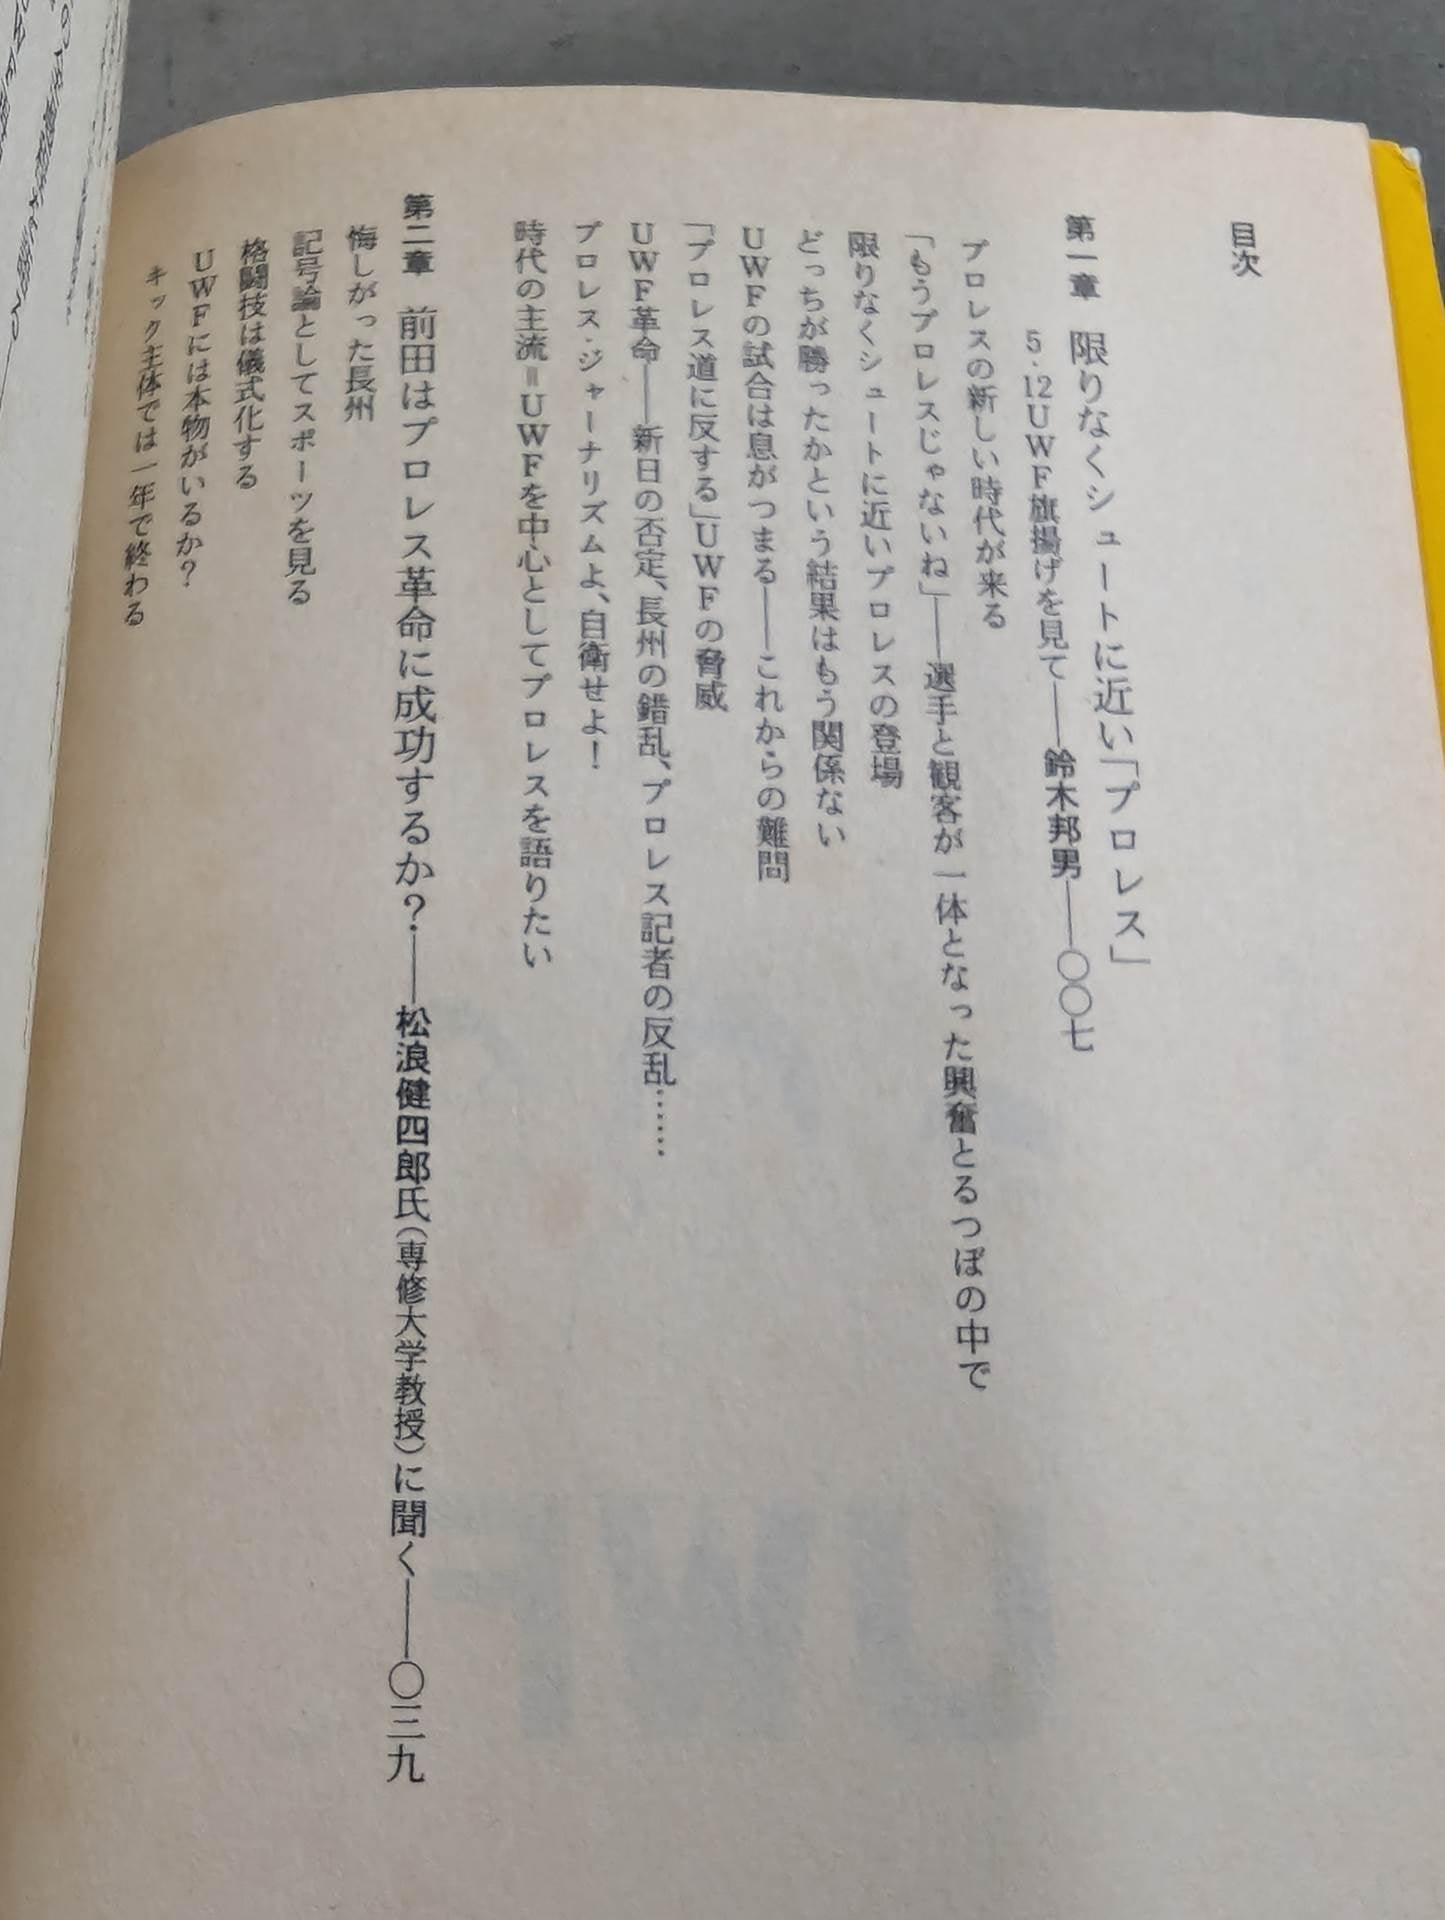 目次
第一章 限りなくシュートに近い「プロレス」
5・12UWF旗揚げを見て――鈴木邦男――〇〇七
プロレスの新しい時代が来る
「もうプロレスじゃないね」――選手と観客が一体となった興奮とるつぼの中で
限りなくシュートに近いプロレスの登場
どっちが勝ったかという結果はもう関係ない
UWFの試合は息がつまる――これからの難問
「プロレス道に反する」UWFの脅威
UWF革命――新日の否定、長州の錯乱、プロレス記者の反乱……
プロレス・ジャーナリズムよ、自衛せよ！
時代の主流＝UWFを中心としてプロレスを語りたい
第二章 前田はプロレス革命に成功するか？――松浪健四郎氏（専修大学教授）に聞く――〇三九
悔しがった長州
記号論としてスポーツを見る
格闘技は儀式化する
UWFには本物がいるか？
キック主体では一年で終わる